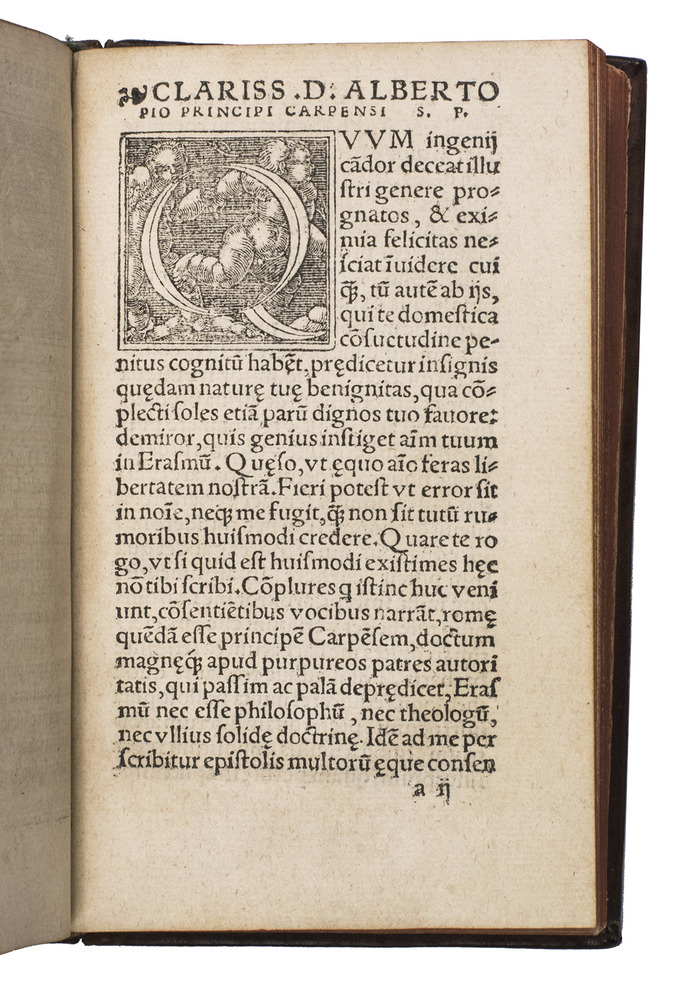 ❧CLARISS .D. ALBERTO
PIO PRINCIPI CARPENSI S. P.
QVVM ingenij
cãdor deceat illu
ſtri genere pro⸗
gnatos, & exi⸗
mia felicitas ne⸗
ſciat ĩuidere cui
q̃ꝫ, tũ autẽ ab ijs,
qui te domeſtica
cõſuetudine pe⸗
nitus cognitũ habẽt, prędicetur inſignis
quędam naturę tuę benignitas, qua cõ⸗
plecti ſoles etiã parũ dignos tuo fauore:
demiror, quis genius inſtiget aĩm tuum
in Eraſmũ. Quęſo, vt ęquo aĩo feras li⸗
bertatem noſtrã. Fieri poteſt vt error ſit
in noĩe, neqꝫ me fugit, q̃ꝫ non ſit tutũ ru⸗
moribus huiſmodi credere. Quare te ro
go, vt ſi quid eſt huiſmodi exiſtimes hęc
nõ tibi ſcribi. Cõplures q iſtinc huc veni
unt, cõſentiẽtibus vocibus narrãt, romę
quẽdã eſſe principẽ Carpẽſem, doctum
magnęq́ꝫ apud purpureos patres autori
tatis, qui paſſim ac palã deprędicet, Eraſ
mũ nec eſſe philoſophũ, nec theologũ,
nec vllius ſolidę doctrinę. Idẽ ad me per
ſcribitur epiſtolis multorũ ęque conſen
a ij